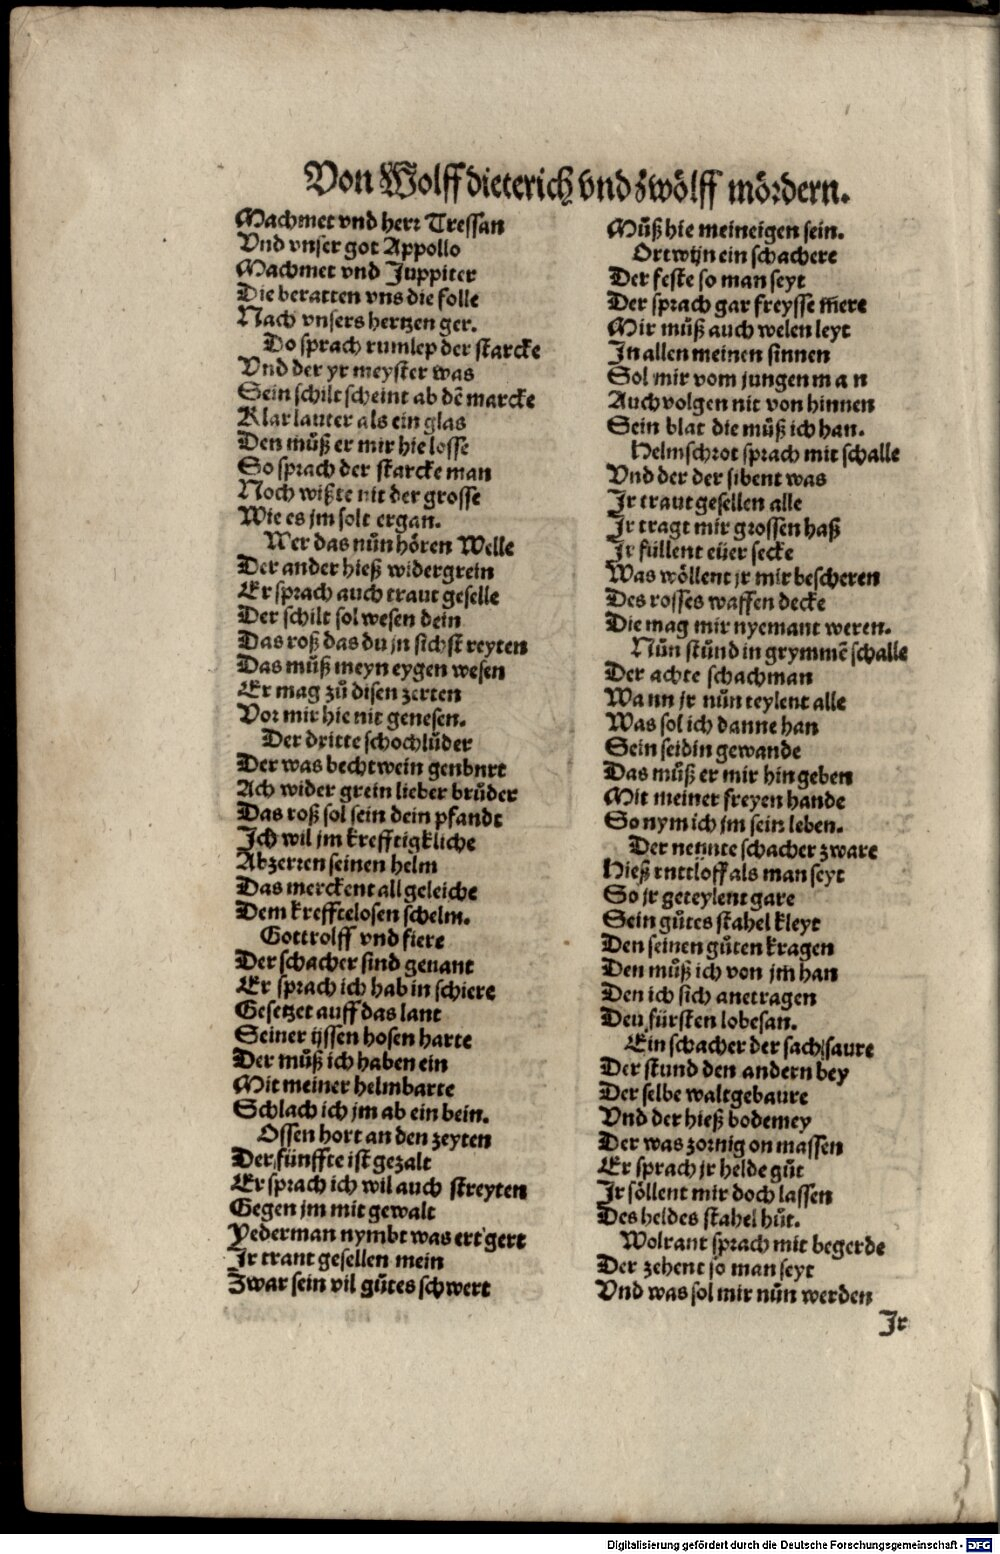 Von Wolffdieterich vnd zwölff mördern.
Machmet vnd herr Tressan
Vnd vnser got Appollo
Machmet vnd Juppiter
Die beratten vns die folle
Nach vnsers hertzen ger.
Do sprach rumlep der starcke
Vnd der yr meyster was
Sein schilt scheint ab dē marcke
Klar lauter als ein glas
Den můß er mir hie losse
So sprach der starcke man
Noch wißte nit der grosse
Wie es jm solt ergan.
Wer das nůn hören Welle
Der ander hieß widergrein
Er sprach auch traut geselle
Der schilt sol wesen dein
Das roß das du jn sichst reyten
Das můß meyn eygen wesen
Er mag zů disen zerten
Vor mir hie nit genesen.
Der dritte schochlůder
Der was bechtwein genbnrt
Ach wider grein lieber brůder
Das roß sol sein dein pfandt
Ich wil jm krefftigkliche
Abzerren seinen helm
Das merckent all geleiche
Dem krefftelosen schelm.
Gottrolff vnd fiere
Der schacher sind genant
Er sprach ich hab in schiere
Gesetzet auff das lant
Seiner ijssen hosen harte
Der můß ich haben ein
Mit meiner helmbarte
Schlach ich jm ab ein bein.
Ossen hort an den zeyten
Der fünffte ist gezalt
Er sprach ich wil auch streyten
Gegen jm mit gewalt
Yederman nymbt was ert gert
Ir trant gesellen mein
Zwar sein vil gůtes schwert
Můß hie meineigen sein.
Ortwijn ein schachere
Der feste so man seyt
Der sprach gar freysse m̃ere
Mir můß auch welen leyt
In allen meinen sinnen
Sol mir vom jungen man
Auch volgen nit von hinnen
Sein blat die můß ich han.
Helmschrot sprach mit schalle
Vnd der der sibent was
Ir traut gesellen alle
Ir tragt mir grossen haß
Ir füllent eüer secke
Was wöllent jr mir bescheren
Des rosses waffen decke
Die mag mir nyemant weren.
Nůn stůnd in grymmē schalle
Der achte schachman
Wann jr nůn teylent alle
Was sol ich danne han
Sein seidin gewande
Das můß er mir hin geben
Mit meiner freyen hande
So nym ich jm sein leben.
Der neünte schacher zware
Hieß rnttloff als man seyt
So jr geteylent gare
Sein gůtes stahel kleyt
Den seinen gůten kragen
Den můß ich von jm han
Den ich sich anetragen
Deu fürsten lobesan.
Ein schacher der sach saure
Der stund den andern bey
Der selbe waltgebaure
Vnd der hieß bodemey
Der was zornig on massen
Er sprach jr helde gůt
Ir söllent mir doch lassen
Des heldes stahel hůt.
Wolrant sprach mit begerde
Der zehent so man seyt
Vnd was sol mir nůn werden
Ir
Digitalisierung gefördert durch die Deutsche Forschungsgemeinschaft - DFG